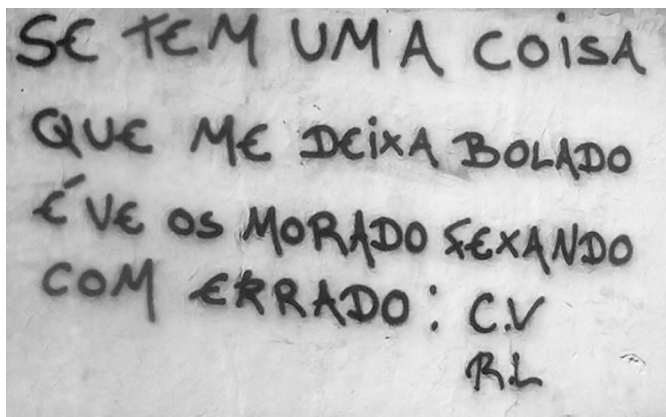 SE TEM UMA COISA
QUE ME DEIXA BOLADO
É VE OS MORADO FEXANDO
COM ERRADO: C.V
R.L